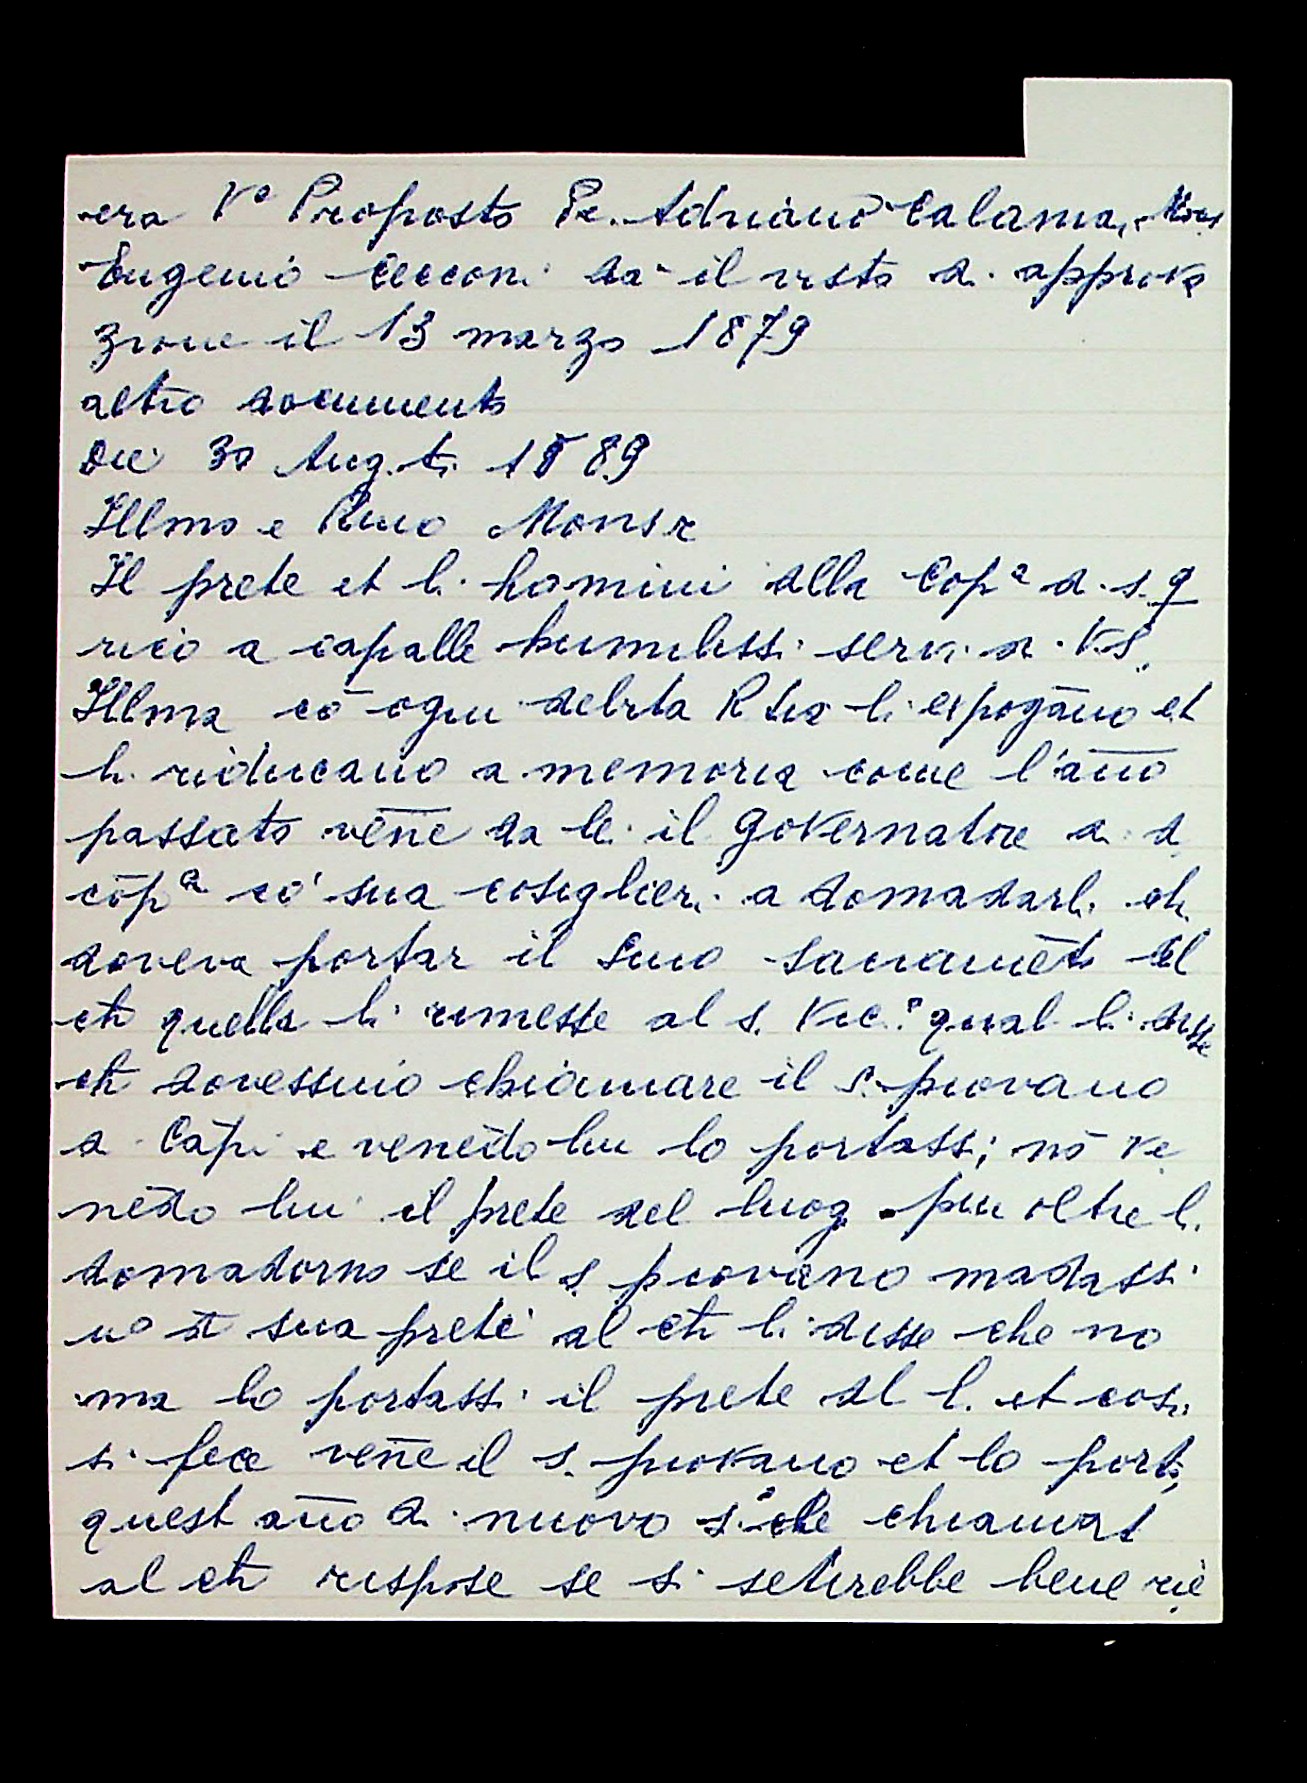 era Vo Proposto Pe. Adriano Calama, Mons
Eugenio Cecconi da il visto di approva
zione il 13 marzo 1879
altro documento
Die 30 Aug.ti 1589
Illmo e Rmo Monsr
Il prete et li homini della Copa di s. q
rico a capalle humilissi servi di V.S.
Illma cō ogni debita Rtia li espogāno et
li riducano a memoria come l'āno
passato vēne da lei il governatore di d.
cōpa co' sua cosiglieri a domadarli ch
doveva portar il Smo sacramēto del
ch quella li rimesse al s. Vic.o qual li disse
ch dovessino chiamare il s. piovano
a Cāpi e venēdo lui lo portassi; nō ve
nēdo lui il prete del luog. piu oltre li
domadorno se il s. piovano madassi
uo di sua preti al ch li disse che no
ma lo portassi il prete del l. et cosi
si fece vēne il s. piovano et lo portò
quest āno di nuovo s. chiamat
al ch rispose se si setirebbe bene viē